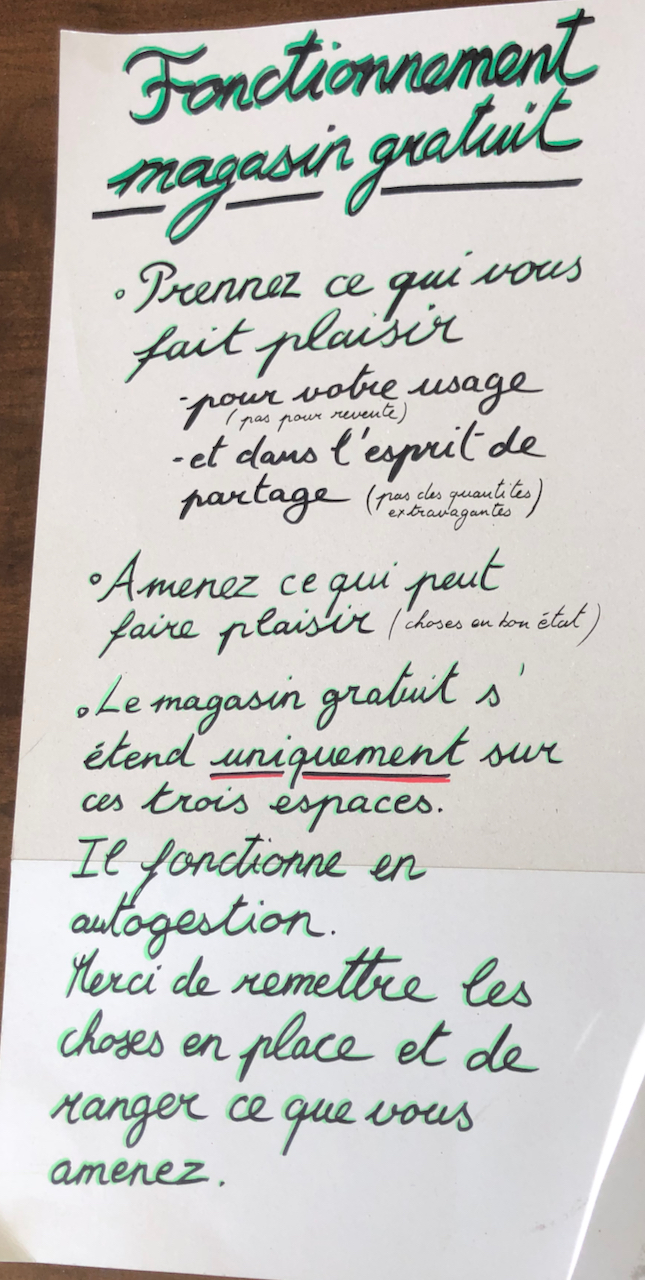 Fonctionnement
magasin gratuit
° Prennez ce qui vous
fait plaisir
- pour votre usage
(pas pour revente)
- et dans l'esprit de
partage (pas des quantités
extravagantes)
° Amenez ce qui peut
faire plaisir (choses en bon état)
° Le magasin gratuit s'
étend uniquement sur
ces trois espaces.
Il fonctionne en
autogestion.
Merci de remettre les
choses en place et de
ranger ce que vous
amenez.